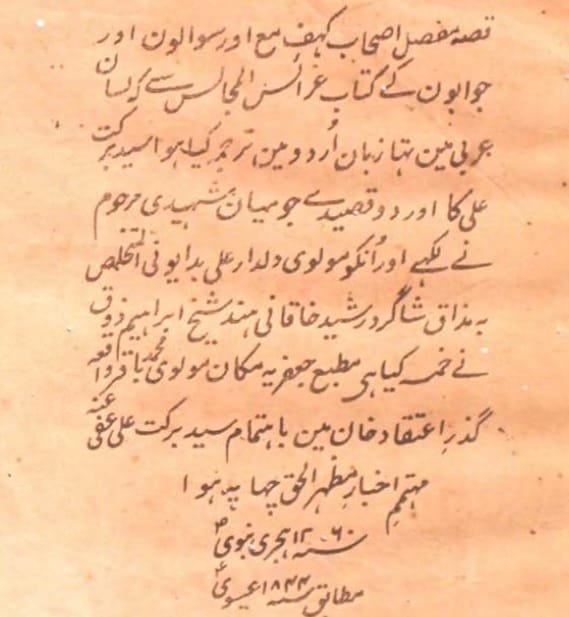 قصہ مفصل اصحاب کہف مع اور سوالون اور
جوابون کے کتاب عرائس المجالس سے کہ لسان
عربی مین تہا زبان اُردو مین ترجمہ کیا ہوا سید برکت
علی کا اور دو قصیدے جو میان شہیدی مرحوم
نے لکہے اور اُنکو مولوی دلدار علی بدایونی المتخلص
بہ مذاق شاگرد رشید خاقانی ہند شیخ ابراہیم ذوق
نے خمسہ کیا ہی مطبع جعفریہ مکان مولوی محمد باقر واقعہ
گذرِ اعتقاد خان مین باہتمام سید برکت علی عفی عنہ
مہتمم اخبار مظہر الحق چہاپہ ہوا
سنہ ۱۲۶۰ ہجری نبویؐ
مطابق سنہ ۱۸۴۴ عیسویؑ